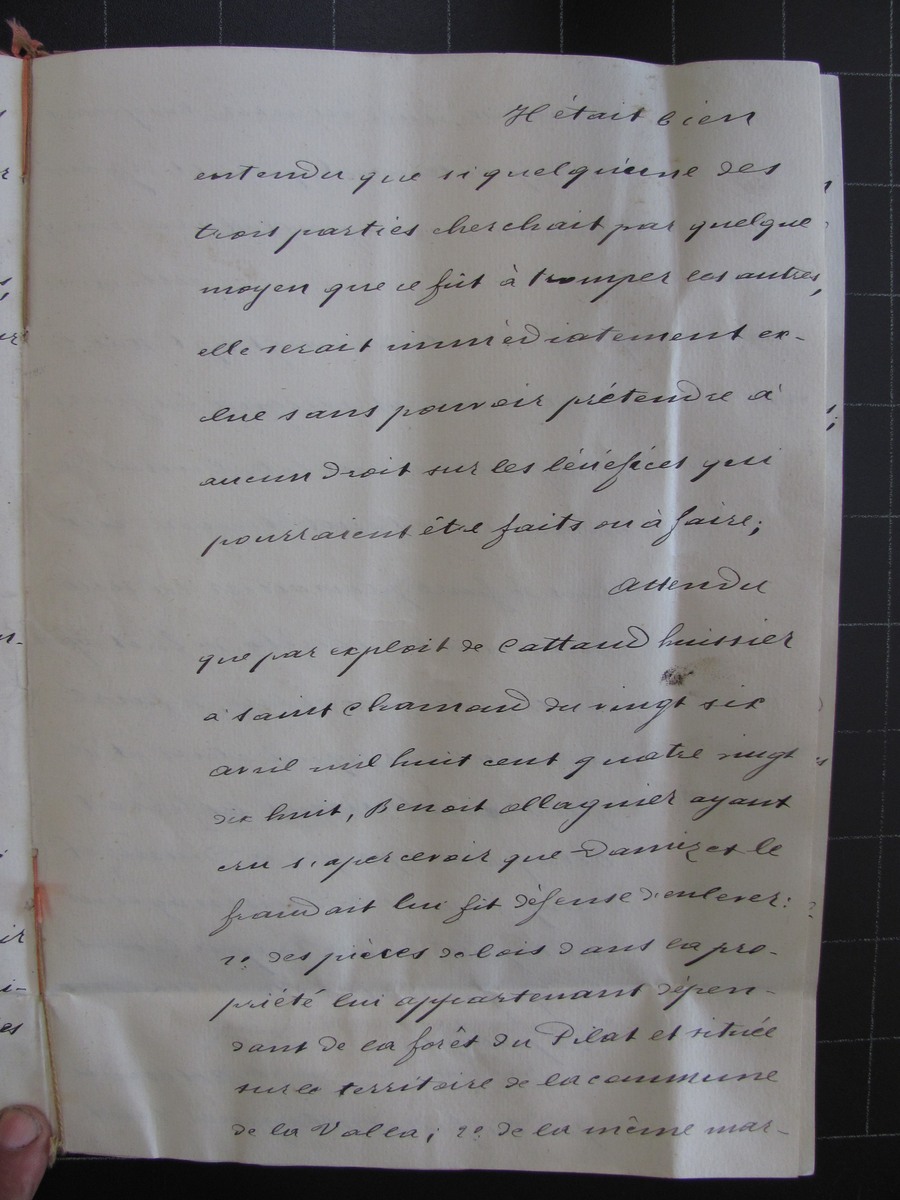 Il était bien
entendu que si quelqu'une des
trois parties cherchait par quelque
moyen que ce fût à tromper les autres,
elle serait immédiatement ex-
clue sans pouvoir prétendre à
aucun droit sur les bénéfices qui
pourraient être faits ou à faire;
Attendu
que par exploit de Cattaud huissier
à Saint Chamand du vingt six
avril mil huit cent quatre vingt
dix huit, Benoit Ollagnier ayant
cru s'apercevoir que le
fraudait lui fit défense d'enlever:
1º des pièces de bois dans la pro-
priété lui appartenant dépen-
dant de la forêt du Pilat et située
sur le territoire de la commune
de la Valla; 2º de la même mar-